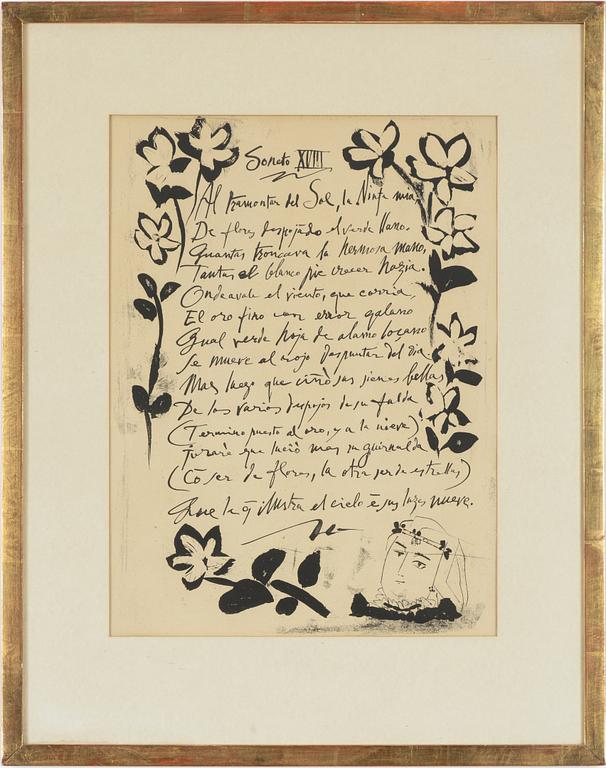 Soneto XVIII
Al tramontar del Sol, la Ninfa mia
De flores despojãdo el verde llano.
Quantas troncava la hermosa mano,
Tantas el blanco pie crecer hazia.
Ondeavale el viento, que corria,
El oro fino con error galano
Qual verde hoja de alamo loçano
Se mueve al rojo despuntar del dia
Mas luego que ciñò sus sienes bellas
De los varios despojos de su falda
(Termino puesto al oro, y a la nieve)
Jurarè que luciò mas su guirnalda
(Cõ ser de flores, la otra ser de estrellas)
Que la q̃ ilustra el cielo ẽ sus luzes nueve.